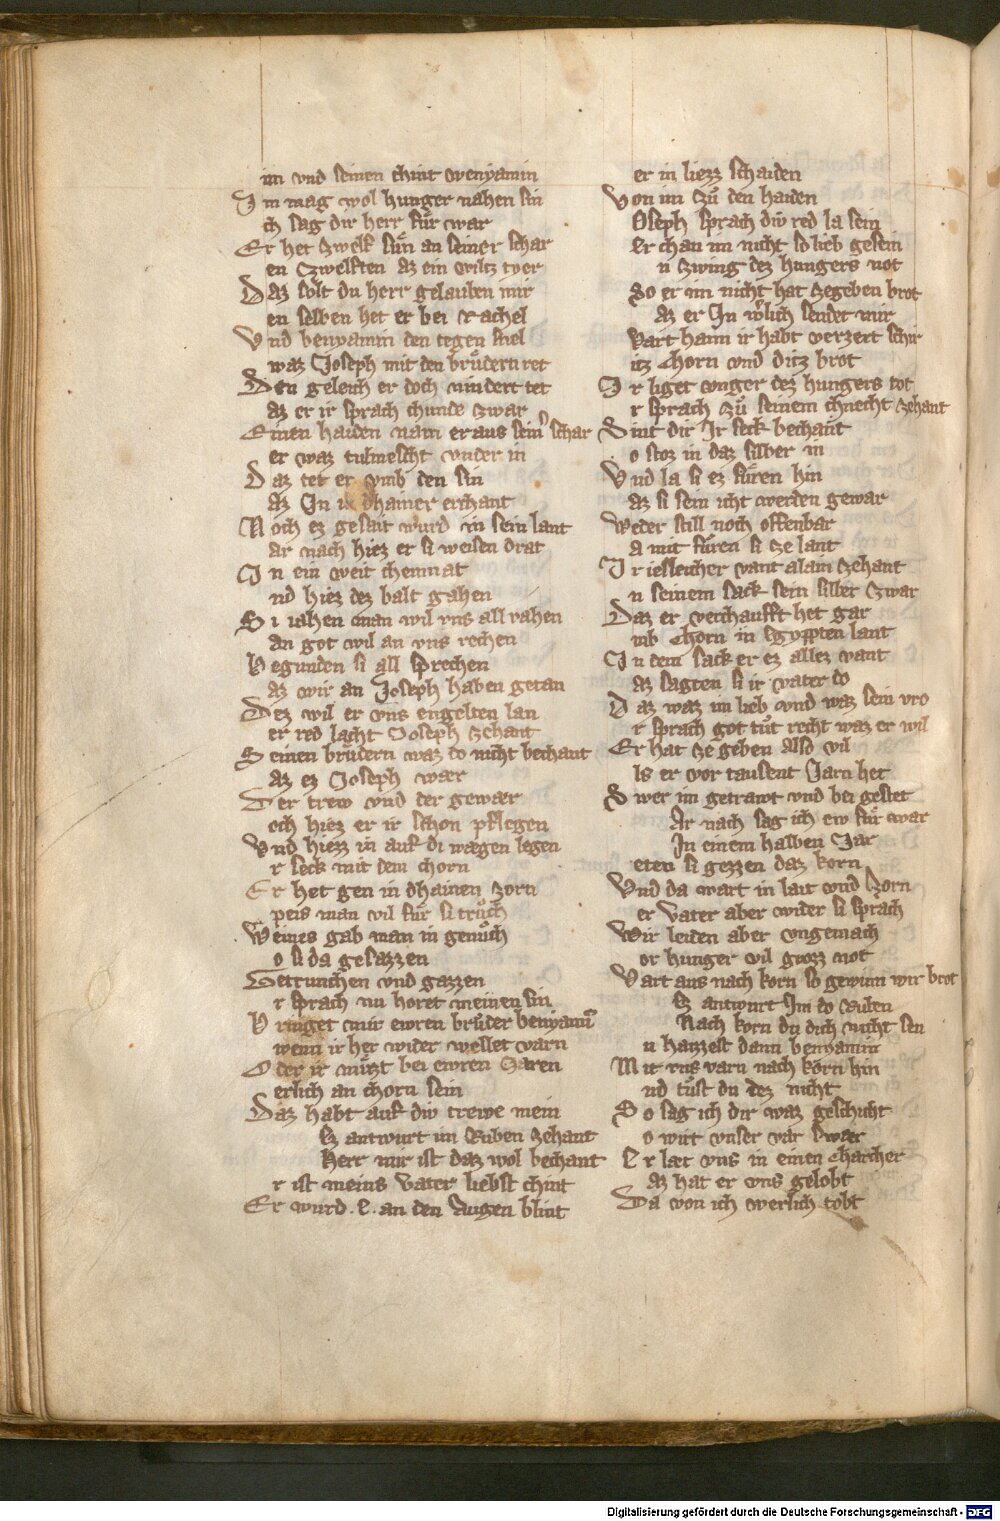 im vnd seinen chint wenyamin
Im mag wol hunger nahen sin
ch sag dir herr für war
Er het zwelf sün an seiner schar
en Czwelften az ein wiltz tyer
Daz solt du herr gelauben mir
en selben het er bei Rachel
Vnd benyamin den tegen snel
waz Joseph mit den brüdern ret
Den geleich er doch nindert tet
az er ir sprach chunde zwar
Einen haiden nam er aus seiner schar
er waz tulmescht vnder in
Daz tet er vmb den sin
az In dhainer erchant
Noch ez gesait wurd in sein lant
ar nach hiez er si weisen drat
In ein weit chemnat
nd hiez dez balt gahen
Si iahen man wil vns all vahen
an got wil an vns rechen
Begunden si all sprechen
az wir an Joseph haben getan
Dez wil er vns engelten lan
er red lacht Joseph zehant
Seinen brüdern waz do nicht bechant
az ez Joseph wær
Der trew vnd der gewær
och hiez er ir schon pflegen
Vnd hiezz in auf di wægen legen
r seck mit dem chorn
Er het gen in dhainen zorn
peis man vil für si trůch
Weines gab man in genůch
o si da gesazzen
Getrunchen vnd gazzen
r sprach nu horet meinen sin
Bringet mir ewren brüder benyamin
wenn ir her wider wellet varn
Oder ir müzt bei ewren Jaren
erlich an chorn sein
Daz habt auf div trewe mein
Ez antwurt im Ruben zehant
Herr mir ist daz wol bechant
r ist meins Vater liebst chint
Er wurd .e. an den Augen blint
er in liezz schaiden
Von im zů den haiden
Oseph sprach div red la sein
Er chan im nicht so lieb gesein
n zwing dez hungers not
So er im nicht hat zegeben brot
az er In wêrlich sendet mir
Vart hann ir habt verzert schir
itz Chorn vnd ditz brot
Ir liget vnger dez hungers tot
r sprach zů seinem chnecht zehant
Bint dir Ir seck bechant
o stoz in daz silber in
Vnd la si ez füren hin
az si sein icht werden gewar
Weder still noch offenbar
a mit füren si ze lant
Ir iesleicher vant alain zehant
n seinem sack sein silber zwar
Daz er verchaufft het gar
mb Chorn in Egyppten lant
In dem sack er ez allez vant
az sagten si ir vater do
Daz waz im lieb vnd waz sein vro
r sprach got tůt recht waz er wil
Er hat ze geben also vil
ls er vor tausent Jarn het
Swer im getrawt vnd bei gestet
Ar nach sag ich ew für war
In einem halben Jar
eten si gezzen daz korn
Vnd da wart in lait vnd zorn
er Vater aber wider si sprach
Wir leiden aber vngemach
or hunger vil grozz not
Vart aus nach korn so gewinn wir brot
Ez antwurt Im do Ruben
Nach korn du dich nicht sen
u hazzest dann benyamin
Mit vns varn nach korn hin
nd tüst du dez nicht
So sag ich dir waz geschicht
o wirt vnser var swær
Er læt vns in einen charcher
az hat er vns gelobt
Da von ich werlich tobt
Digitalisierung gefördert durch die Deutsche Forschungsgemeinschaft - DFG